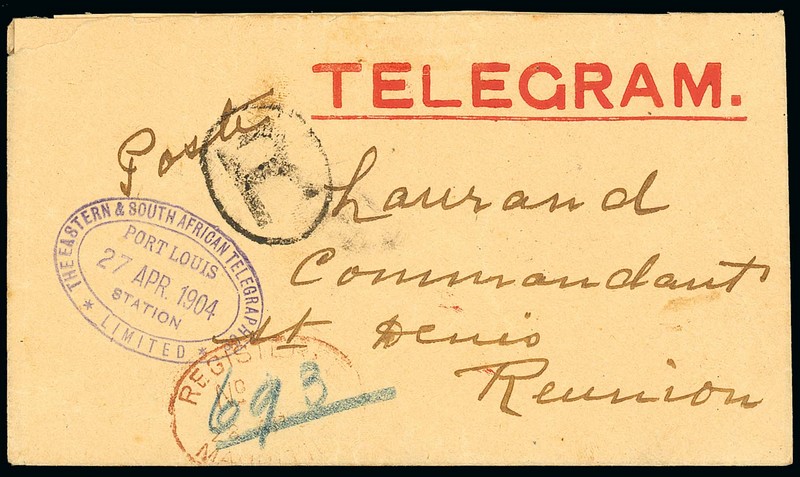 TELEGRAM.
Poste
T
Laurand
Commandant
St Denis
Reunion
THE EASTERN & SOUTH AFRICAN TELEGRAPH
PORT LOUIS
27 APR. 1904
STATION
* LIMITED *
REGISTER
NO
693